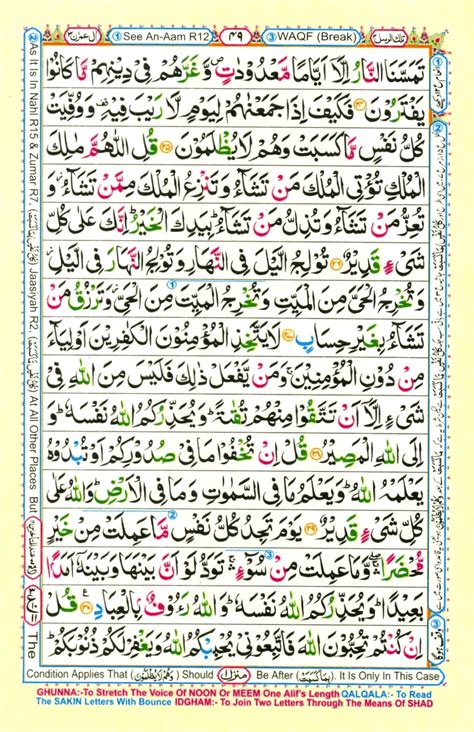 اٰل عمرٰن ٣ ① See An-Aam R12 ٤٩ ③ WAQF (Break) تلك الرسل ٣
تَمَسَّنَا النَّارُ اِلَّاۤ اَيَّامًا مَّعْدُوْدٰتٍ ۪ وَّغَرَّهُمْ فِيْ دِيْنِهِمْ مَّا كَانُوْا
يَفْتَرُوْنَ ﴿٢٤﴾ فَكَيْفَ اِذَا جَمَعْنٰهُمْ لِيَوْمٍ لَّا رَيْبَ فِيْهِ ۟ وَوُفِّيَتْ
كُلُّ نَفْسٍ مَّا كَسَبَتْ وَهُمْ لَا يُظْلَمُوْنَ ﴿٢٥﴾ قُلِ اللّٰهُمَّ مٰلِكَ
الْمُلْكِ تُؤْتِي الْمُلْكَ مَنْ تَشَآءُ وَتَنْزِعُ الْمُلْكَ مِمَّنْ تَشَآءُ ۫ وَ
تُعِزُّ مَنْ تَشَآءُ وَتُذِلُّ مَنْ تَشَآءُ ؕ بِيَدِكَ الْخَيْرُ ؕ اِنَّكَ عَلٰى كُلِّ
شَيْءٍ قَدِيْرٌ ﴿٢٦﴾ تُوْلِجُ الَّيْلَ فِي النَّهَارِ وَتُوْلِجُ النَّهَارَ فِي الَّيْلِ ۫
وَتُخْرِجُ الْحَيَّ مِنَ الْمَيِّتِ وَتُخْرِجُ الْمَيِّتَ مِنَ الْحَيِّ ۫ وَتَرْزُقُ مَنْ
تَشَآءُ بِغَيْرِ حِسَابٍ ﴿٢٧﴾ لَا يَتَّخِذِ الْمُؤْمِنُوْنَ الْكٰفِرِيْنَ اَوْلِيَآءَ
مِنْ دُوْنِ الْمُؤْمِنِيْنَ ۚ وَمَنْ يَّفْعَلْ ذٰلِكَ فَلَيْسَ مِنَ اللّٰهِ فِيْ
شَيْءٍ اِلَّاۤ اَنْ تَتَّقُوْا مِنْهُمْ تُقٰىةً ؕ وَيُحَذِّرُكُمُ اللّٰهُ نَفْسَهٗ ؕ وَ
اِلَى اللّٰهِ الْمَصِيْرُ ﴿٢٨﴾ قُلْ اِنْ تُخْفُوْا مَا فِيْ صُدُوْرِكُمْ اَوْ تُبْدُوْهُ
يَعْلَمْهُ اللّٰهُ ؕ وَيَعْلَمُ مَا فِي السَّمٰوٰتِ وَمَا فِي الْاَرْضِ ؕ وَاللّٰهُ عَلٰى
كُلِّ شَيْءٍ قَدِيْرٌ ﴿٢٩﴾ يَوْمَ تَجِدُ كُلُّ نَفْسٍ مَّا عَمِلَتْ مِنْ خَيْرٍ
مُّحْضَرًا ۖۚ وَّمَا عَمِلَتْ مِنْ سُوْٓءٍ ۚۛ تَوَدُّ لَوْ اَنَّ بَيْنَهَا وَبَيْنَهٗۤ اَمَدًۢا
بَعِيْدًا ؕ وَيُحَذِّرُكُمُ اللّٰهُ نَفْسَهٗ ؕ وَاللّٰهُ رَءُوْفٌۢ بِالْعِبَادِ ﴿٣٠﴾ قُلْ
اِنْ كُنْتُمْ تُحِبُّوْنَ اللّٰهَ فَاتَّبِعُوْنِيْ يُحْبِبْكُمُ اللّٰهُ وَيَغْفِرْ لَكُمْ ذُنُوْبَكُمْ ؕ
② As It Is In Nahl R15 & Zumar R7. Jaasiyah R2. At All Other Places But The
Condition Applies That (وَهُمْ لَا يُظْلَمُوْنَ) Should منزل ١ Be After (مَا كَسَبَتْ). It Is Only In This Case
GHUNNA:-To Stretch The Voice Of NOON Or MEEM One Alif's Length QALQALA:- To Read
The SAKIN Letters With Bounce IDGHAM:- To Join Two Letters Through The Means Of SHAD